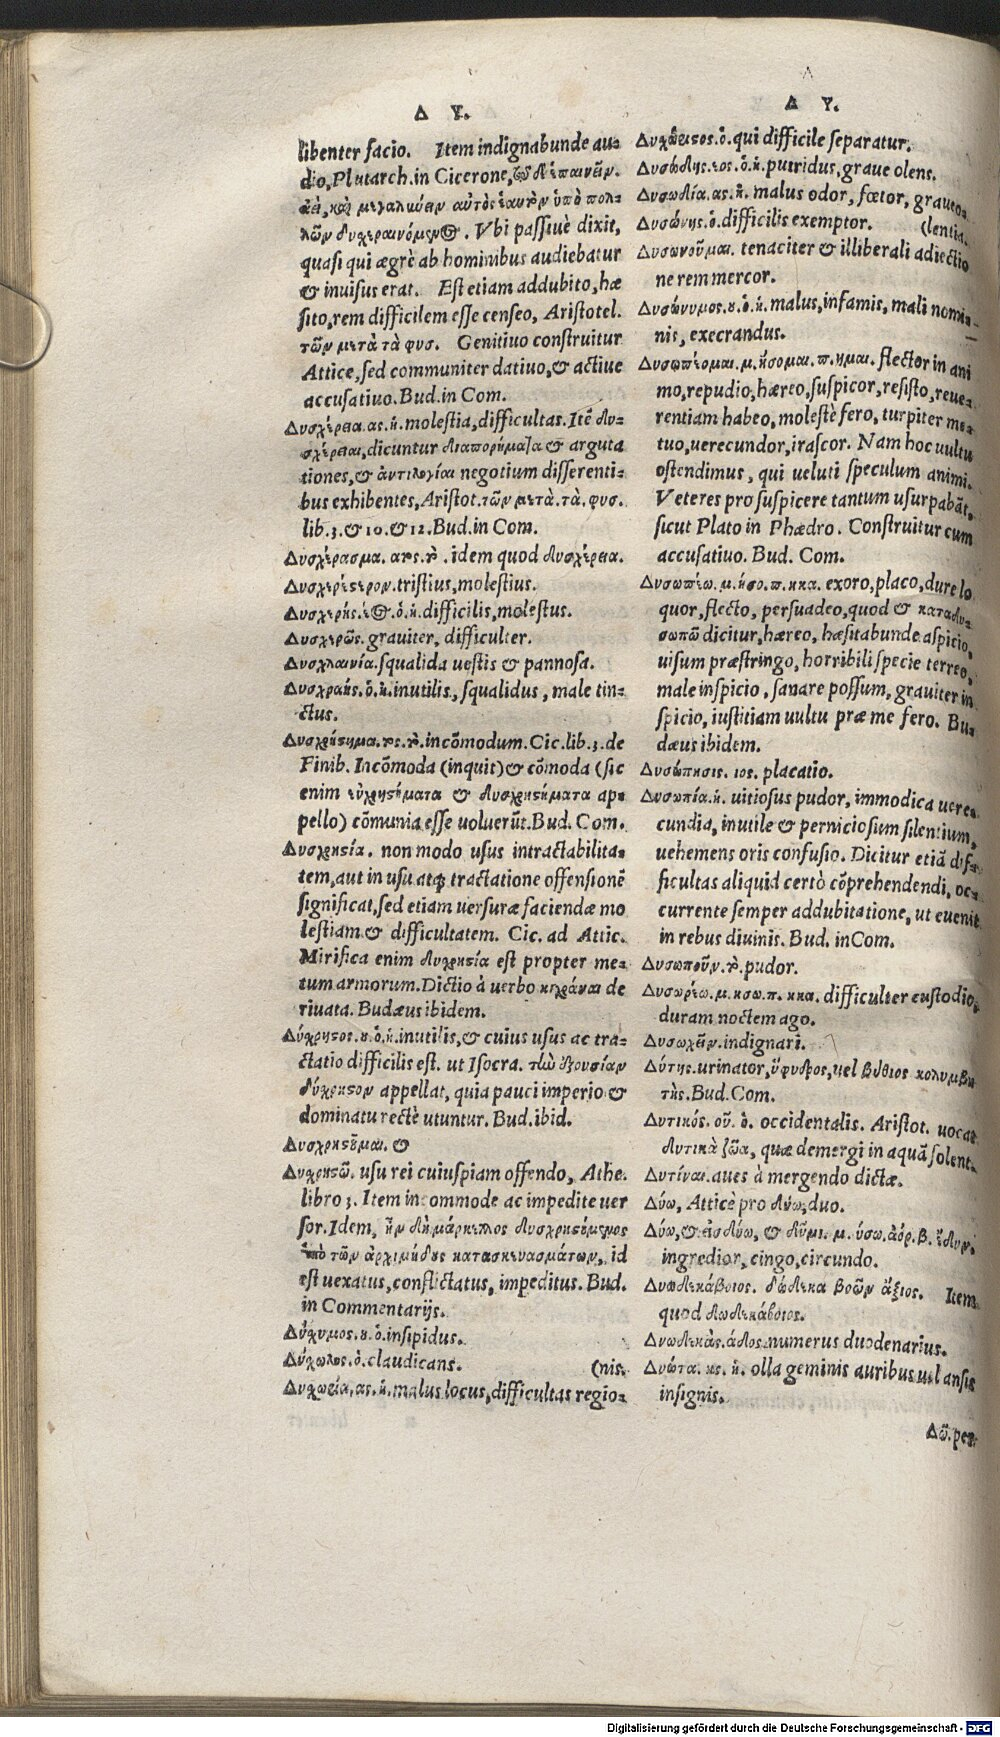 Δ Υ.
libenter facio. Item indignabunde au-
dio, Plutarch. in Cicerone, τῷ δ' ἐπαινεῖν.
ἀεὶ, καὶ μεγαλύνειν αὐτὸς ἑαυτὸν ὑπὸ πολ-
λῶν δυχεραινόμενος. Vbi passiuè dixit,
quasi qui ægrè ab hominibus audiebatur
& inuisus erat. Est etiam addubito, hæ
sito, rem difficilem esse censeo, Aristotel.
τῶν μετὰ τὰ φυσ. Genitiuo construitur
Attice, sed communiter datiuo, & actiue
accusatiuo. Bud. in Com.
Δυσχέρεια. ας. ἡ. molestia, difficultas. Itē δυ-
σχέρειαι, dicuntur διαπορήματα & arguta
tiones, & ἀντιλογίαι negotium disserenti-
bus exhibentes, Aristot. τῶν μετὰ. τὰ. φυσ.
lib. 3. & 10. & 12. Bud. in Com.
Δυσχέρασμα. ατος. τὸ. idem quod δυσχέρεια.
Δυσχερέστερον. tristius, molestius.
Δυσχερὴς. έος. ὁ. ἡ. difficilis, molestus.
Δυσχερῶς. grauiter, difficulter.
Δυσχλαινία. squalida uestis & pannosa.
Δυσχραὴς. ὁ. ἡ. inutilis, squalidus, male tin-
ctus.
Δυσχρήστημα. τος. τὸ. incōmodum. Cic. lib. 3. de
Finib. Incōmoda (inquit) & cōmoda (sic
enim εὐχρηστήματα & δυσχρηστήματα ap-
pello) cōmunia esse uoluerūt. Bud. Com.
Δυσχρηστία. non modo usus intractabilita-
tem, aut in usu atq; tractatione offensionē
significat, sed etiam uersuræ faciendæ mo
lestiam & difficultatem. Cic. ad Attic.
Mirifica enim δυχρηστία est propter me-
tum armorum. Dictio à uerbo κιχράναι de
riuata. Budæus ibidem.
Δύχρηστος. ου. ὁ. ἡ. inutilis, & cuius usus ac tra-
ctatio difficilis est. ut Isocra. τὴν ἐξουσίαν
δύχρηστον appellat, quia pauci imperio &
dominatu rectè utuntur. Bud. ibid.
Δυσχρηστοῦμαι. &
Δυχρηστῶ. usu rei cuiuspiam offendo, Athe.
libro 3. Item incommode ac impedite uer
sor. Idem, ἦν δὴ μάρκελλος δυσχρηστούμενος
ὑπὸ τῶν ἀρχιμήδους κατασκευασμάτων, id
est uexatus, conflictatus, impeditus. Bud.
in Commentarijs.
Δύχυμος. ου. ὁ. insipidus.
Δύχωλος. ὁ. claudicans. (nis.
Δυχωρία. ας. ἡ. malus locus, difficultas regio-
Δ Υ.
Δυχώριστος. ὁ. qui difficile separatur.
Δυσώδης. εος. ὁ. ἡ. putridus, graue olens.
Δυσωδία. ας. ἡ. malus odor, fœtor, grauto-
Δυσώνης. ὁ. difficilis exemptor. (lentia.
Δυσωνοῦμαι. tenaciter & illiberali adiectio
ne rem mercor.
Δυσώνυμος. ου. ὁ. ἡ. malus, infamis, mali nomi-
nis, execrandus.
Δυσωπέομαι. μ. ήσομαι. π. ημαι. flector in ani
mo, repudio, hæreo, suspicor, resisto, reue-
rentiam habeo, molestè fero, turpiter me-
tuo, uerecundor, irascor. Nam hoc uultu
ostendimus, qui ueluti speculum animi.
Veteres pro suspicere tantum usurpabāt,
sicut Plato in Phædro. Construitur cum
accusatiuo. Bud. Com.
Δυσωπέω. μ. ήσο. π. κκα. exoro, placo, dure lo
quor, flecto, persuadeo, quod & καταδυ-
σωπῶ dicitur, hæreo, hæsitabunde aspicio,
uisum præstringo, horribili specie terreo,
male inspicio, sanare possum, grauiter in
spicio, iustitiam uultu præ me fero. Bu-
dæus ibidem.
Δυσώπησις. ιος. placatio.
Δυσωπία. ἡ. uitiosus pudor, immodica uere-
cundia, inutile & perniciosium silentium,
uehemens oris confusio. Dicitur etiā dif-
ficultas aliquid certò cōprehendendi, oc-
currente semper addubitatione, ut euenit
in rebus diuinis. Bud. in Com.
Δυσωποῦν. τὸ. pudor.
Δυσωρέω. μ. ησω. π. κκα. difficulter custodio,
duram noctem ago.
Δυσωχεῖν. indignari.
Δύτης. urinator, ὕφυδρος, uel βύθιος κολυμβη
τὴς. Bud. Com.
Δυτικός. οῦ. ὁ. occidentalis. Aristot. uocat
δυτικὰ ζῶα, quæ demergi in aquā solent.
Δυτίναι. aues à mergendo dictæ.
Δύω, Atticè pro δύω, duo.
Δύω, & εἰσδύω, & δῦμι. μ. ύσω. ἀόρ. β. ἔδυν.
ingredior, cingo, circundo.
Δυωδεκάβοιος. δώδεκα βοῶν ἄξιος. Item
quod δωδεκάβοιος.
Δυωδεκὰς. άδος. numerus duodenarius.
Δυώτα. ης. ἡ. olla geminis auribus uel ansis
insignis.
Δῶ. per
Digitalisierung gefördert durch die Deutsche Forschungsgemeinschaft - DFG